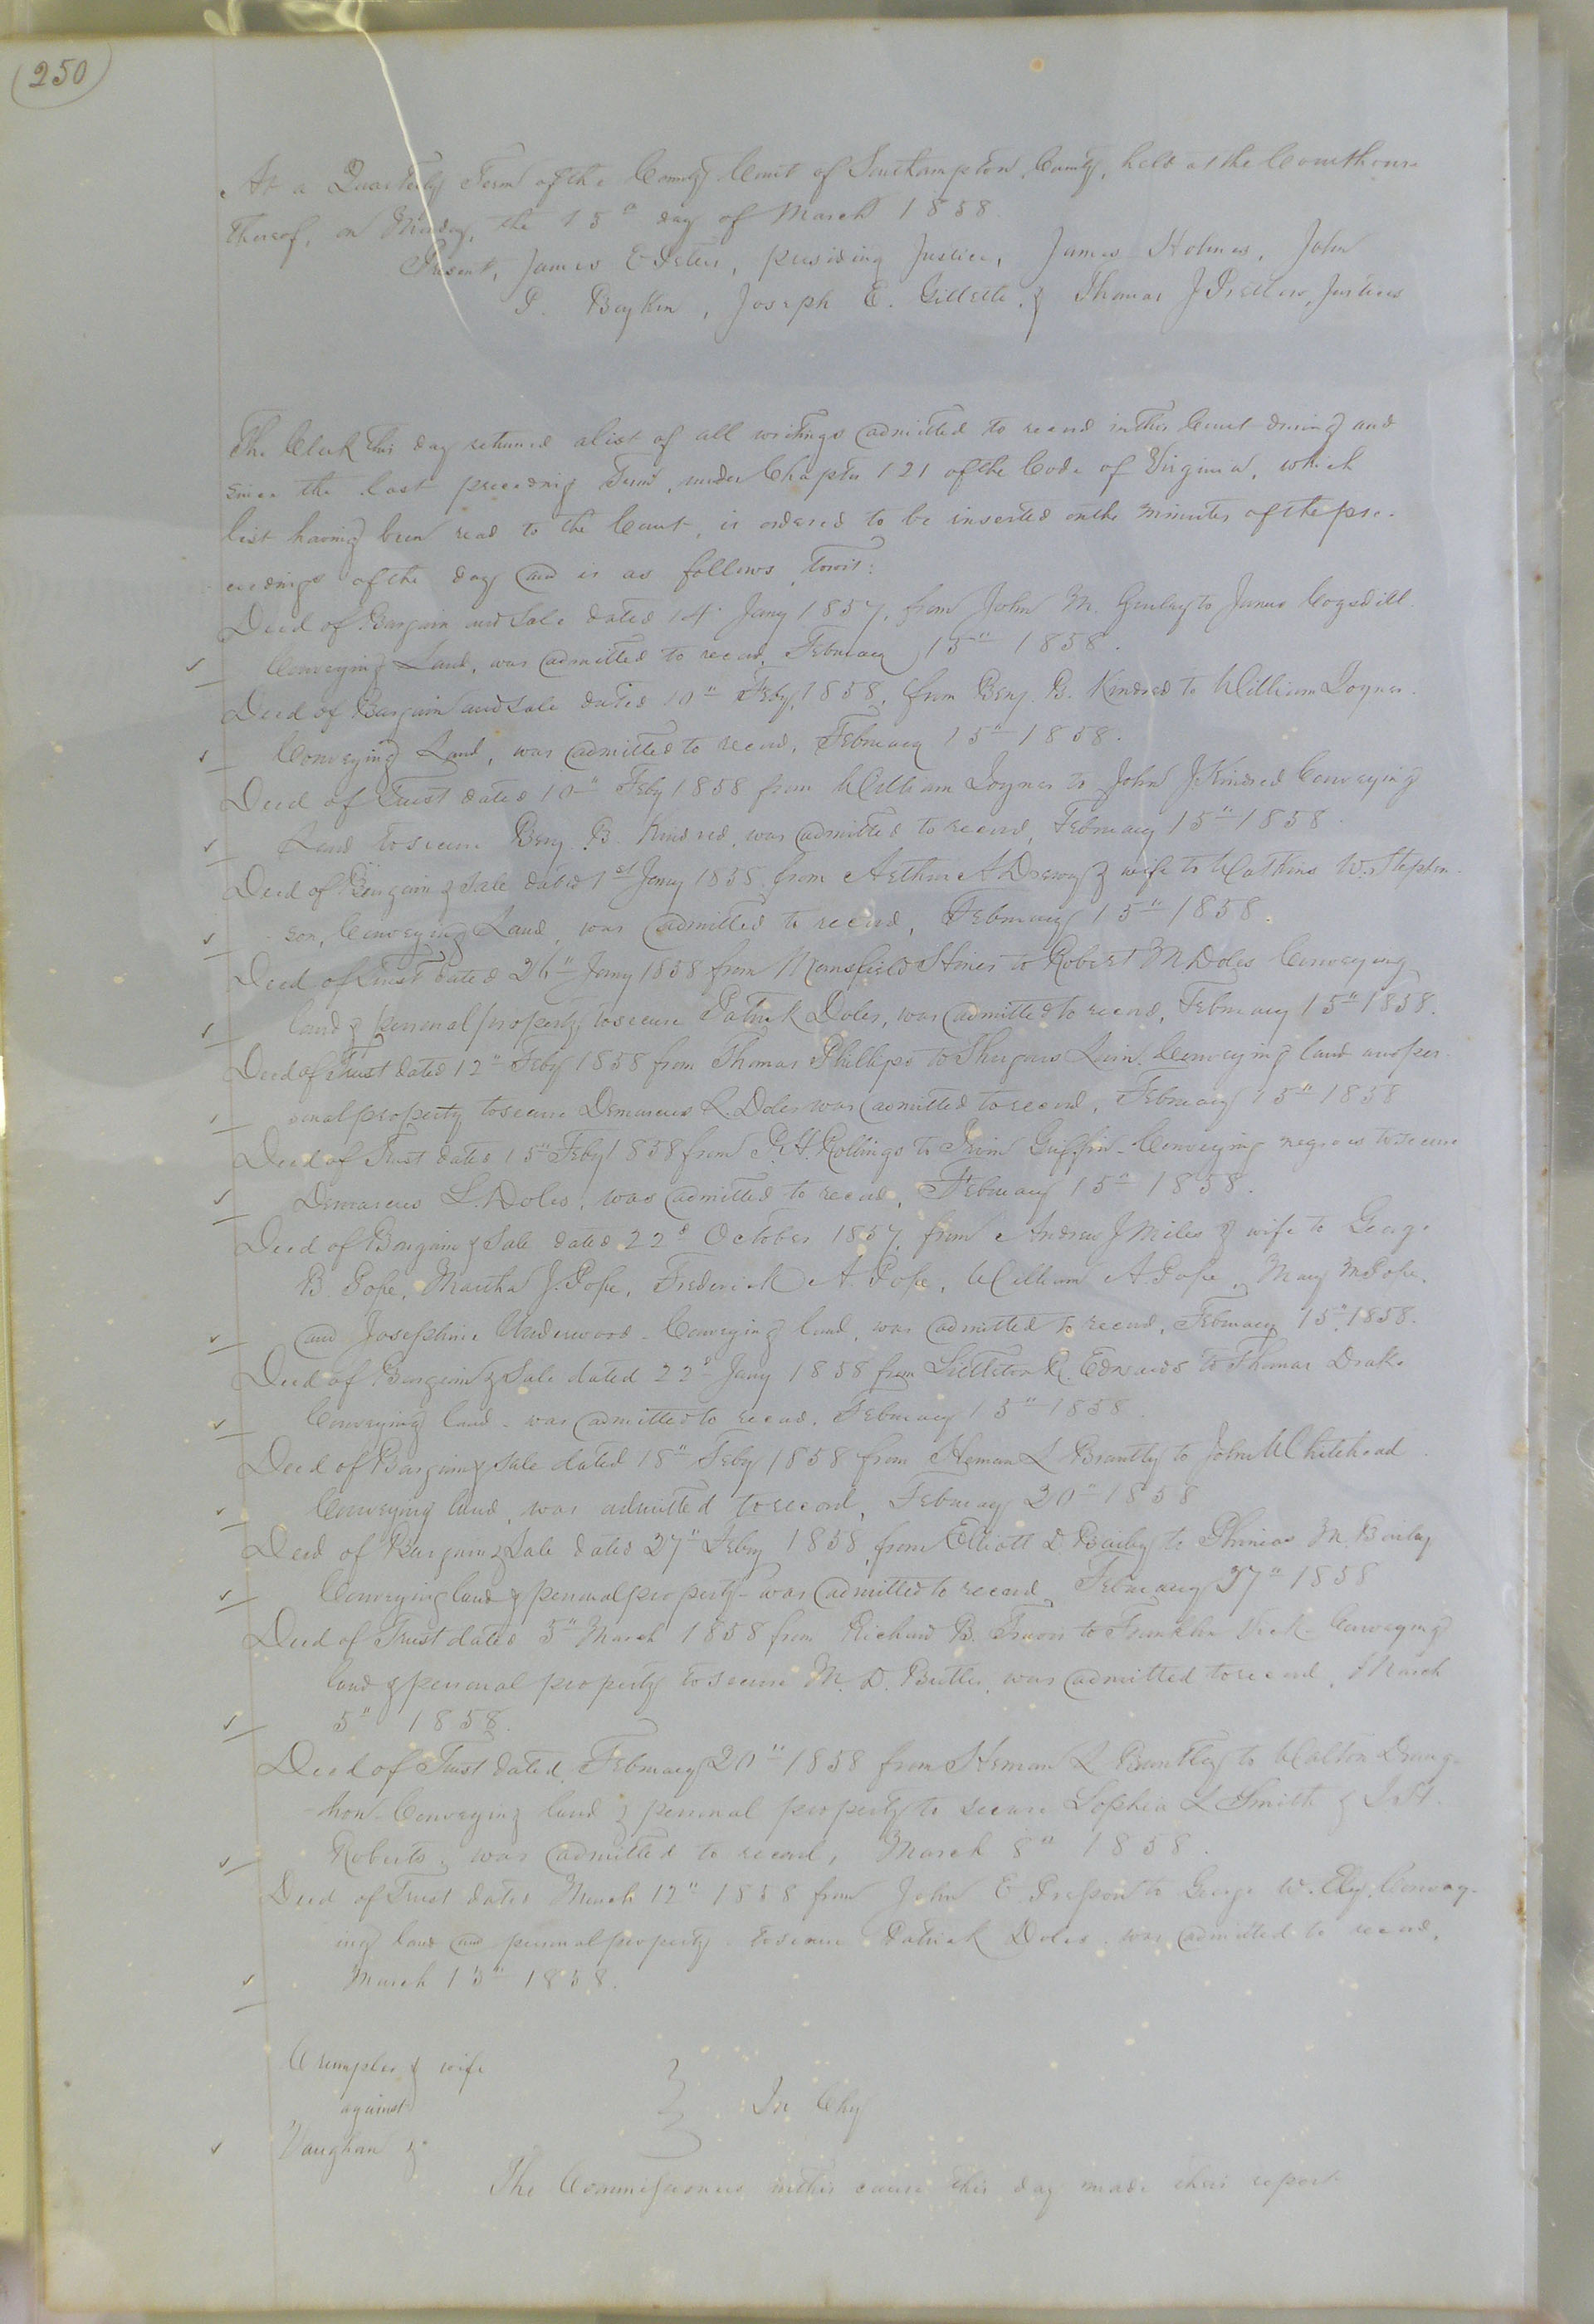 (250)
At a Quarterly Term of the County Court of Southampton County, held at the Courthouse
thereof, on Monday, the 15th day of March 1858.
Present, James E Peters, presiding Justice, James Holmes, John
D. Boykin, Joseph E. Gillette & Thomas J Pretlow, Justices
The Clerk this day returned a list of all writings admitted to record in this Court during and
since the last preceeding Term, under Chapter 121 of the Code of Virginia, which
list having been read to the Court, is ordered to be inserted on the minutes of the pro-
ceedings of the day and is as follows, towit:
Deed of Bargain and Sale dated 14 Jany 1857, from John M. Gurley to James Cogsdill
Conveying Land, was admitted to record, February 15" 1858.
Deed of Bargain and Sale dated 10" Feby, 1858, from Benj. B. Kindred to William Joyner.
Conveying Land, was admitted to record, February 15" 1858.
Deed of Trust dated 10" Feby 1858 from William Joyner to John J Kindred Conveying
Land to secure Benj. B. Kindred, was admitted to record, February 15" 1858.
Deed of Bargain & Sale dated 1st Jany 1858 from Arthur A Drewry & wife to Watkins W. Stephen-
son, Conveying Land, was admitted to record, February 15" 1858.
Deed of Trust dated 26" Jany 1858 from Mansfield Stines to Robert M Doles Conveying
land & personal property to secure Patrick Doles, was admitted to record, February 15" 1858.
Deed of Trust dated 12" Feby 1858 from Thomas Phillips to Conveying land and per-
sonal property to secure Demarcus L. Doles was admitted to record, February 15" 1858
Deed of Trust dated 15" Feby 1858 from P. H. Rollings to Griffin - Conveying negroes to secure
Demarcus L. Doles, was admitted to record, February 15" 1858.
Deed of Bargain & Sale dated 22d October 1857, from Andrew J Miles & wife to George
B. Pope, Martha J. Pope, Frederick A Pope, William A Pope, Mary M Pope,
and Josephine Underwood - Conveying land, was admitted to record, February 15" 1858.
Deed of Bargain & Sale dated 22d Jany 1858 from Littleton R. Edwards to Thomas Drake
Conveying land - was admitted to record, February 15" 1858.
Deed of Bargain & Sale dated 18" Feby 1858 from Heman L Brantly to John Whitehead
Conveying land, was admitted to record, February 20" 1858
Deed of Bargain & Sale dated 27" Feby 1858, from Elliott D. Bailey to Phineas M. Bailey
Conveying land & personal property - was admitted to record, February 27" 1858
Deed of Trust dated 5" March 1858 from Richard B. Travis to Franklin Vick - Conveying
land & personal property to secure M. D. Butler, was admitted to record, March
5" 1858.
Deed of Trust dated, February 20" 1858 from Heman L Brantley to Walton Draug-
hon - Conveying land & personal property to secure Sophia L Smith & J. H.
Roberts, was admitted to record, March 8" 1858.
Deed of Trust dated March 12" 1858 from John E Presson to George W. Ely, Convey-
ing land and personal property to secure Patrick Doles was admitted to record,
March 13" 1858.
Crumpler & wife
against } In Chy
Vaughan &c
The Commissioners in this cause this day made their report